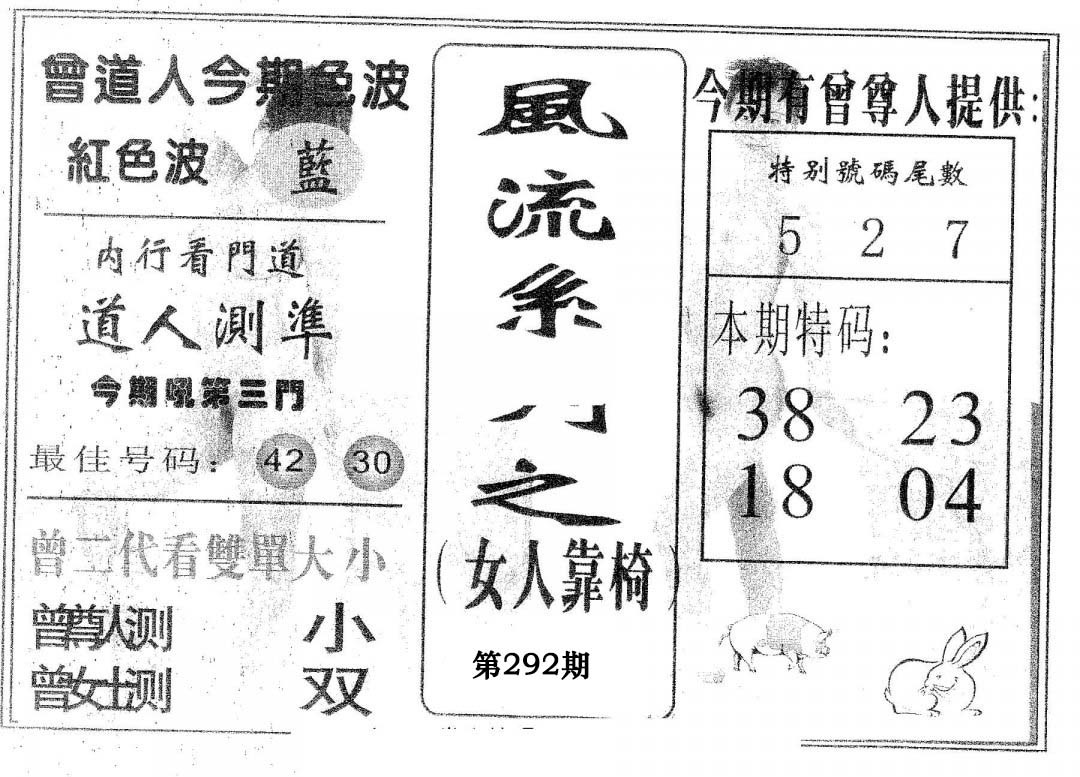 曾道人今期色波
紅色波 藍
内行看門道
道人測準
今期吼第三門
最佳号码: 42 30
曾二代看雙單大小
曾尊人测 小
曾女士测 双
風
流
系
之
(女人靠椅)
第292期
今期有曾尊人提供:
特别號碼尾數
5 2 7
本期特码:
38 23
18 04